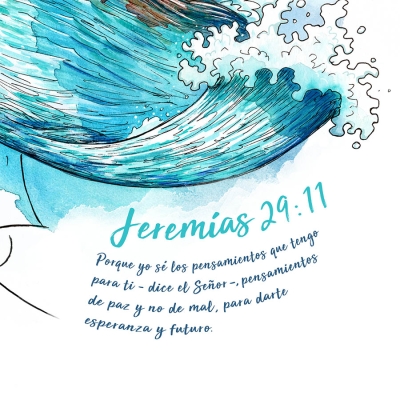 Jeremías 29:11
Porque yo sé los pensamientos que tengo
para ti - dice el Señor-, pensamientos
de paz y no de mal, para darte
esperanza y futuro.